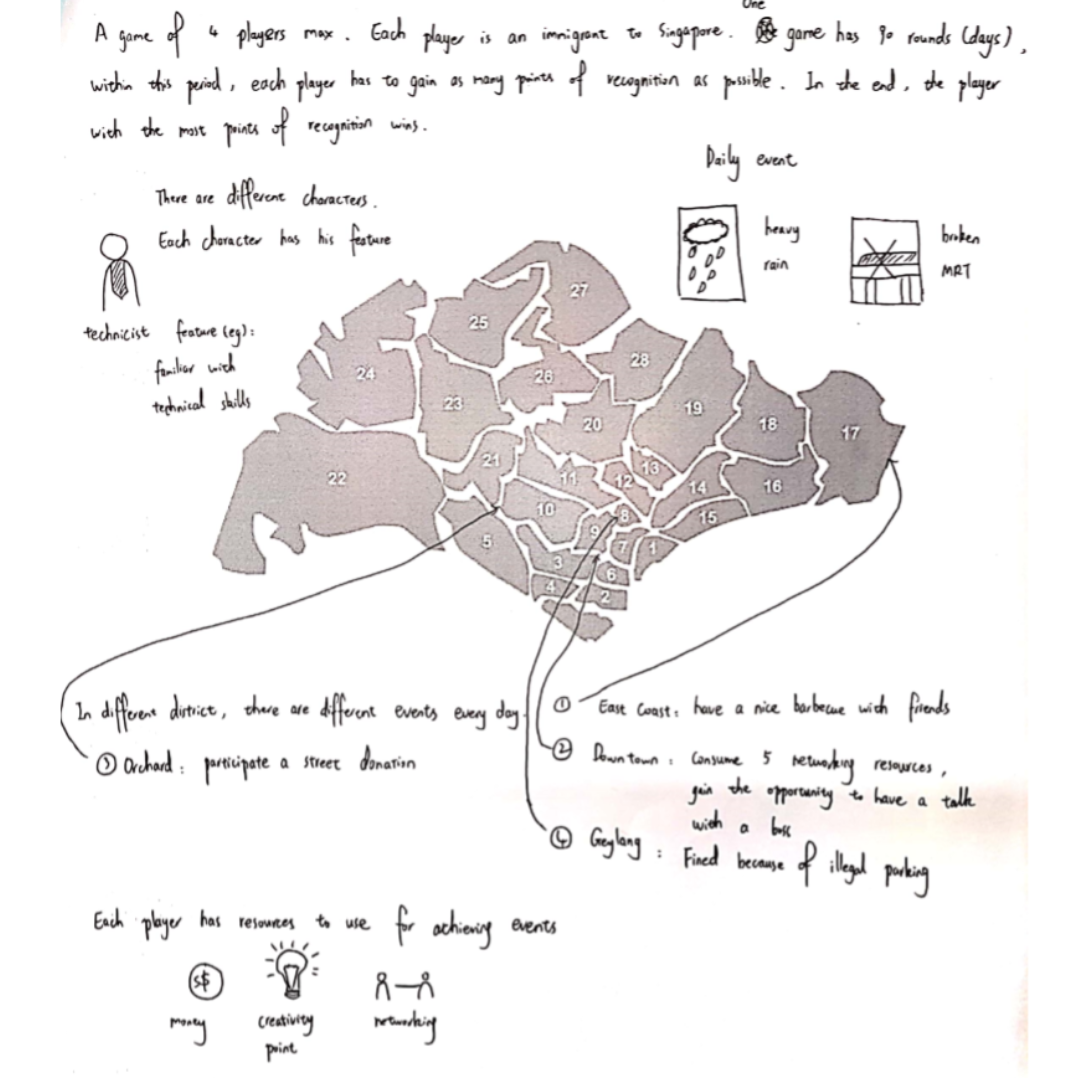 A game of 4 players max. Each player is an immigrant to Singapore. One game has 90 rounds (days),
within this period, each player has to gain as many points of recognition as possible. In the end, the player
with the most points of recognition wins.
Daily event
There are different characters.
Each character has his feature
heavy
rain
broken
MRT
technicist feature (eg):
familiar with
technical skills
27
25
28
24
26
23
19
20
18
17
21
13
22
11
12
14
16
10
8
15
9
5
7
1
3
6
4
2
In different district, there are different events every day
③ Orchard: participate a street donation
① East Coast: have a nice barbecue with friends
② Downtown: Consume 5 networking resources,
gain the opportunity to have a talk
with a boss
④ Geylang: Fined because of illegal parking
Each player has resources to use for achieving events
S$
money
creativity
point
networking